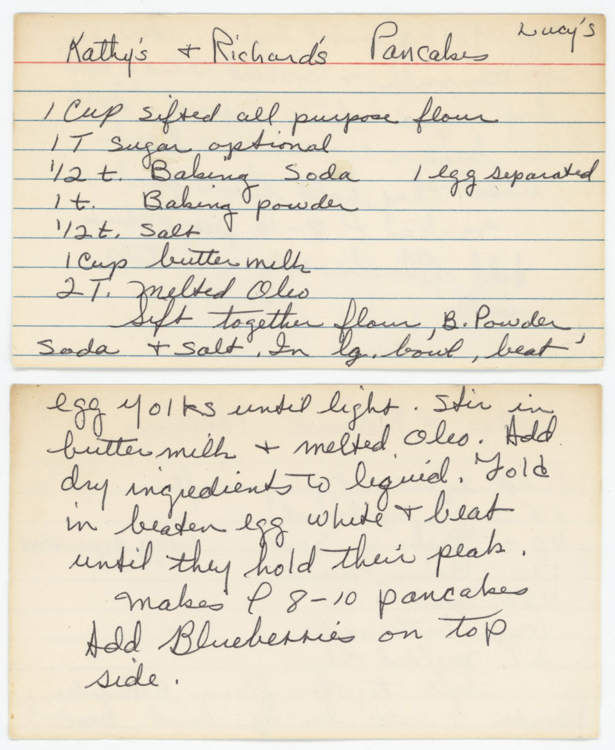 Lucy's
Kathy's + Richard's Pancakes
1 Cup sifted all purpose flour
1 T sugar optional
1/2 t. Baking Soda 1 egg separated
1 t. Baking powder
1/2 t. Salt
1 Cup buttermilk
2 T. melted Oleo
Sift together flour, B. Powder,
Soda + Salt. In lg. bowl, beat
egg yolks until light. Stir in
buttermilk + melted Oleo. Add
dry ingredients to liquid. Fold
in beaten egg white + beat
until they hold their peak.
Makes 8-10 pancakes
Add Blueberries on top
side.